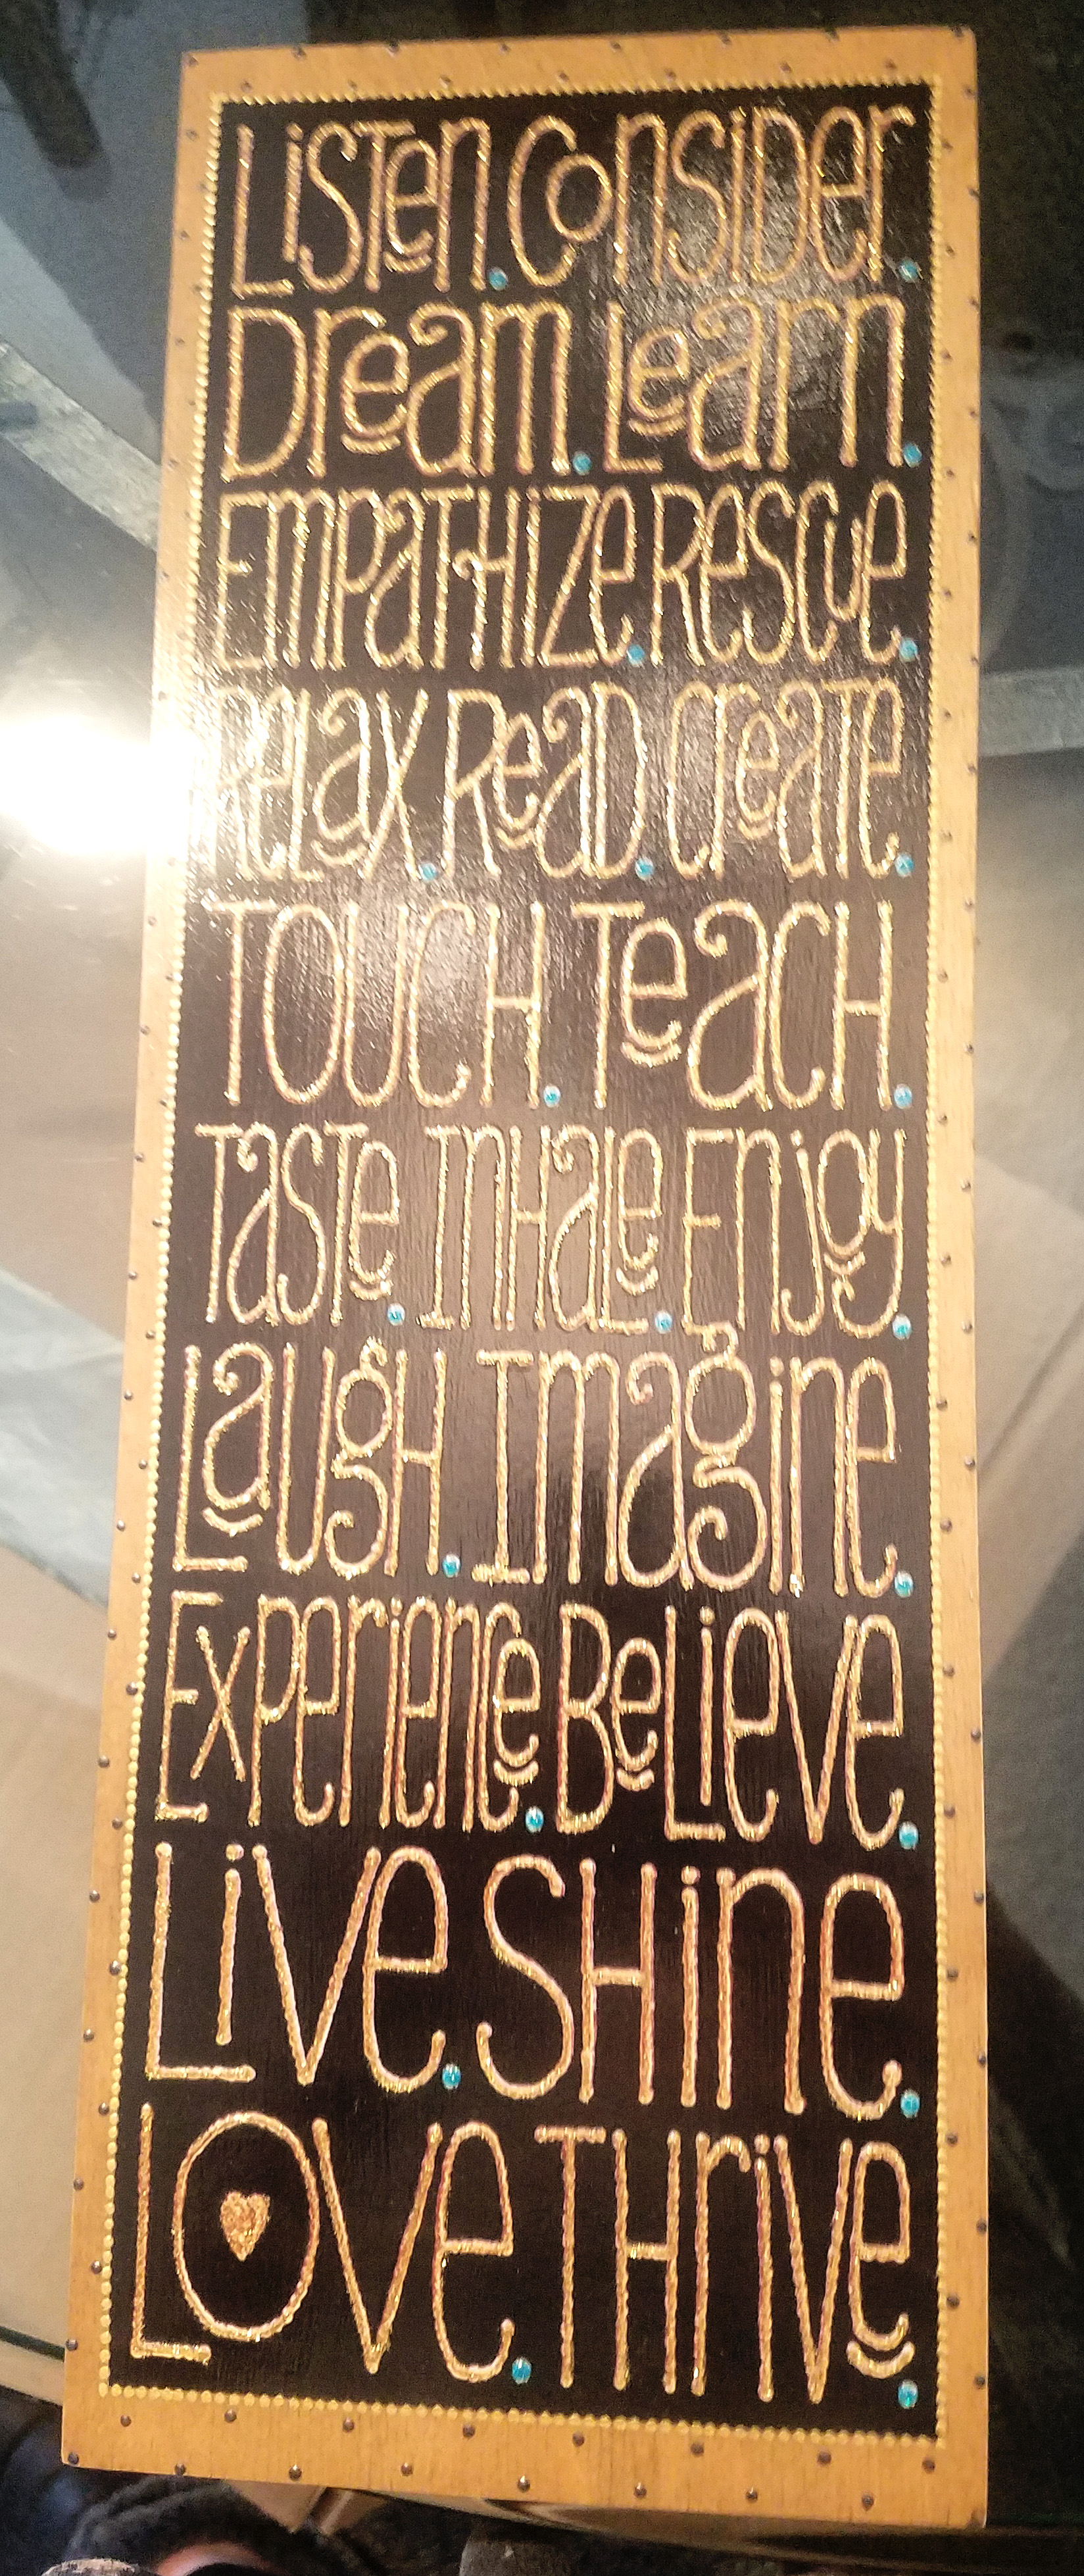 Listen. Consider.
Dream. Learn.
Empathize. Rescue.
Relax. Read. Create.
Touch. Teach.
Taste. Inhale. Enjoy.
Laugh. Imagine.
Experiene. Believe.
Live. Shine.
Love. Thrive.